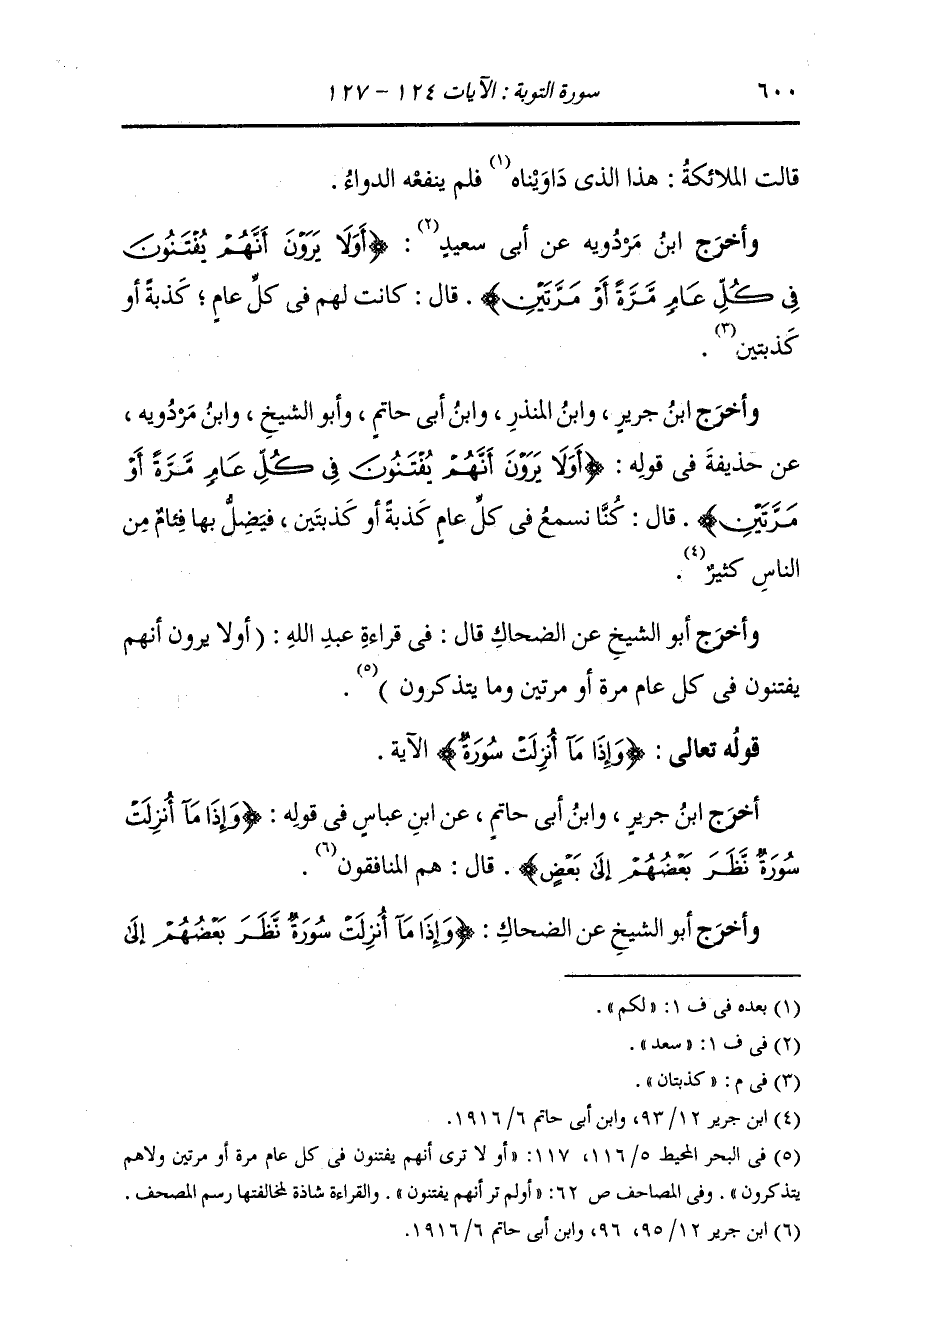 ٦٠٠ سورة التوبة : الآيات ١٢٤ - ١٢٧
قالت الملائكةُ : هذا الذى دَاوَيْناه(١) فلم ينفعْه الدواءُ .
وأخرَج ابنُ مَرْدُويه عن أبى سعيدٍ(٢) : ﴿أَوَلَا يَرَوْنَ أَنَّهُمْ يُفْتَنُونَ
فِى كُلِّ عَامٍ مَّرَّةً أَوْ مَرَّتَيْنِ﴾ . قال : كانت لهم فى كلِّ عامٍ ؛ كَذبةً أو
كَذبتين(٣) .
وأخرَج ابنُ جريرٍ ، وابنُ المنذرِ ، وابنُ أبى حاتمٍ ، وأبو الشيخِ ، وابنُ مَرْدُويه ،
عن حذيفةَ فى قولِه : ﴿أَوَلَا يَرَوْنَ أَنَّهُمْ يُفْتَنُونَ فِى كُلِّ عَامٍ مَّرَّةً أَوْ
مَرَّتَيْنِ﴾ . قال : كُنَّا نسمعُ فى كلِّ عامٍ كَذبةً أو كَذبتَين ، فيَضِلُّ بها فِئامٌ مِن
الناسِ كثيرٌ(٤) .
وأخرَج أبو الشيخِ عن الضحاكِ قال : فى قراءةِ عبدِ اللهِ : ( أولا يرون أنهم
يفتنون فى كل عام مرة أو مرتين وما يتذكرون )(٥) .
قولُه تعالى : ﴿وَإِذَا مَآ أُنزِلَتْ سُورَةٌ﴾ الآية .
أخرَج ابنُ جريرٍ ، وابنُ أبى حاتمٍ ، عن ابنِ عباسٍ فى قولِه : ﴿وَإِذَا مَآ أُنزِلَتْ
سُورَةٌ نَّظَرَ بَعْضُهُمْ إِلَىٰ بَعْضٍ﴾ . قال : هم المنافقون(٦) .
وأخرَج أبو الشيخِ عن الضحاكِ : ﴿وَإِذَا مَآ أُنزِلَتْ سُورَةٌ نَّظَرَ بَعْضُهُمْ إِلَىٰ
(١) بعده فى ف ١: «لكم» .
(٢) فى ف ١: «سعد» .
(٣) فى م : «كذبتان» .
(٤) ابن جرير ١٢/ ٩٣، وابن أبى حاتم ٦/ ١٩١٦.
(٥) فى البحر المحيط ٥/ ١١٦، ١١٧: «أو لا ترى أنهم يفتنون فى كل عام مرة أو مرتين ولاهم
يتذكرون» . وفى المصاحف ص ٦٢: «أولم تر أنهم يفتنون» . والقراءة شاذة لمخالفتها رسم المصحف .
(٦) ابن جرير ١٢/ ٩٥، ٩٦، وابن أبى حاتم ٦/ ١٩١٦.